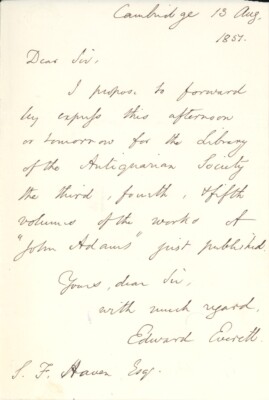 Cambridge 13 Aug.
1851.
Dear Sir,
I propose to forward
by express this afternoon
or tomorrow for the Library
of the Antiquarian Society
the third, fourth, & fifth
volumes of the works of
"John Adams" just published.
Yours, dear Sir,
with much regard,
Edward Everett.
S. F. Haven Esq.